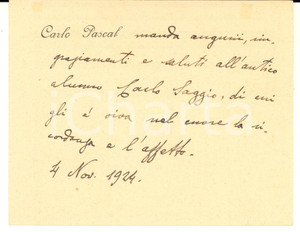 Carlo Pascal manda auguri, rin-
graziamenti e saluti all'antico
alunno Carlo Saggio, di cui
gli è viva nel cuore la ri-
cordanza e l'affetto.
4 Nov. 1924.